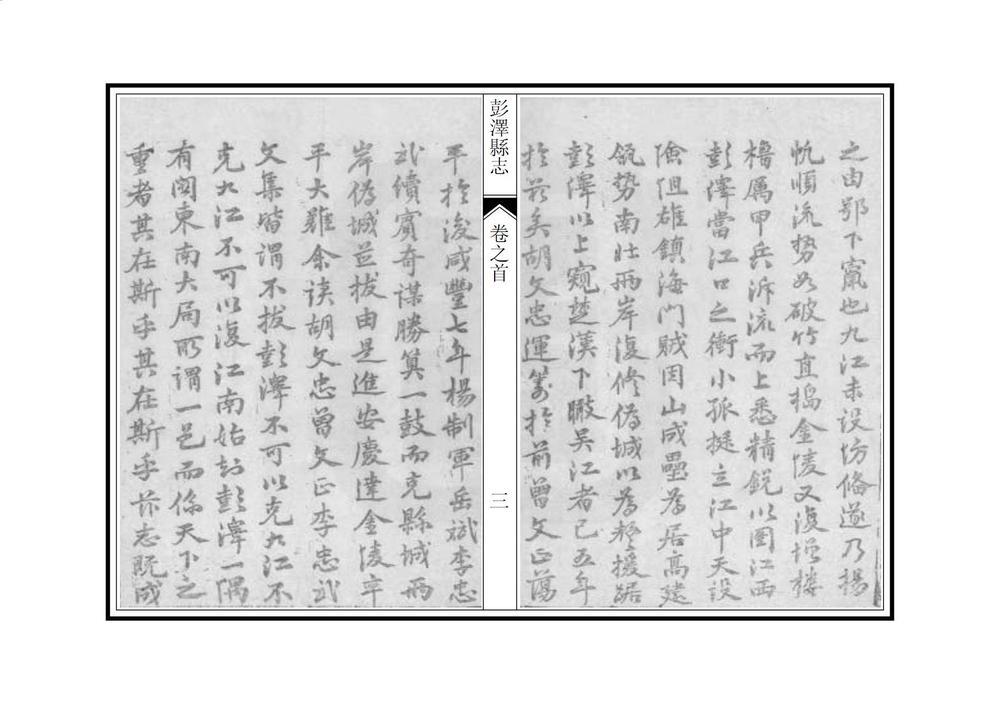 之由鄂下竄也九江未設坊俻遂乃揚
帆順流势如破竹直搗金陵又復增楼
櫓厲甲兵泝流而上悉精銳以圖江西
彭澤當江口之衝小孤挺立江中天設
險阻雄鎮海门賊因山成壘為居高建
瓴势南北兩岸復修偽城以為援踞
彭澤以上窺楚漢下瞰吴江者已五年
扵兹矣胡文忠運筹扵前曾文正蕩
彭澤縣志
卷之首
三
平扵後咸豐七年楊制軍岳斌李忠
武續賓奇谋勝算一鼓而克縣城兩
岸偽城並拔由是進安慶達金陵卒
平大難余读胡文忠曾文正李忠武
文集皆谓不拔彭澤不可以克九江不
克九江不可以復江南姑勿彭澤一隅
有関東南大局所謂一邑而係天下之
重者其在斯乎其在斯乎志既成